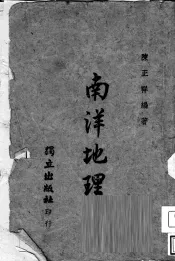 陳正祥編著
南洋地理
獨立出版社印行